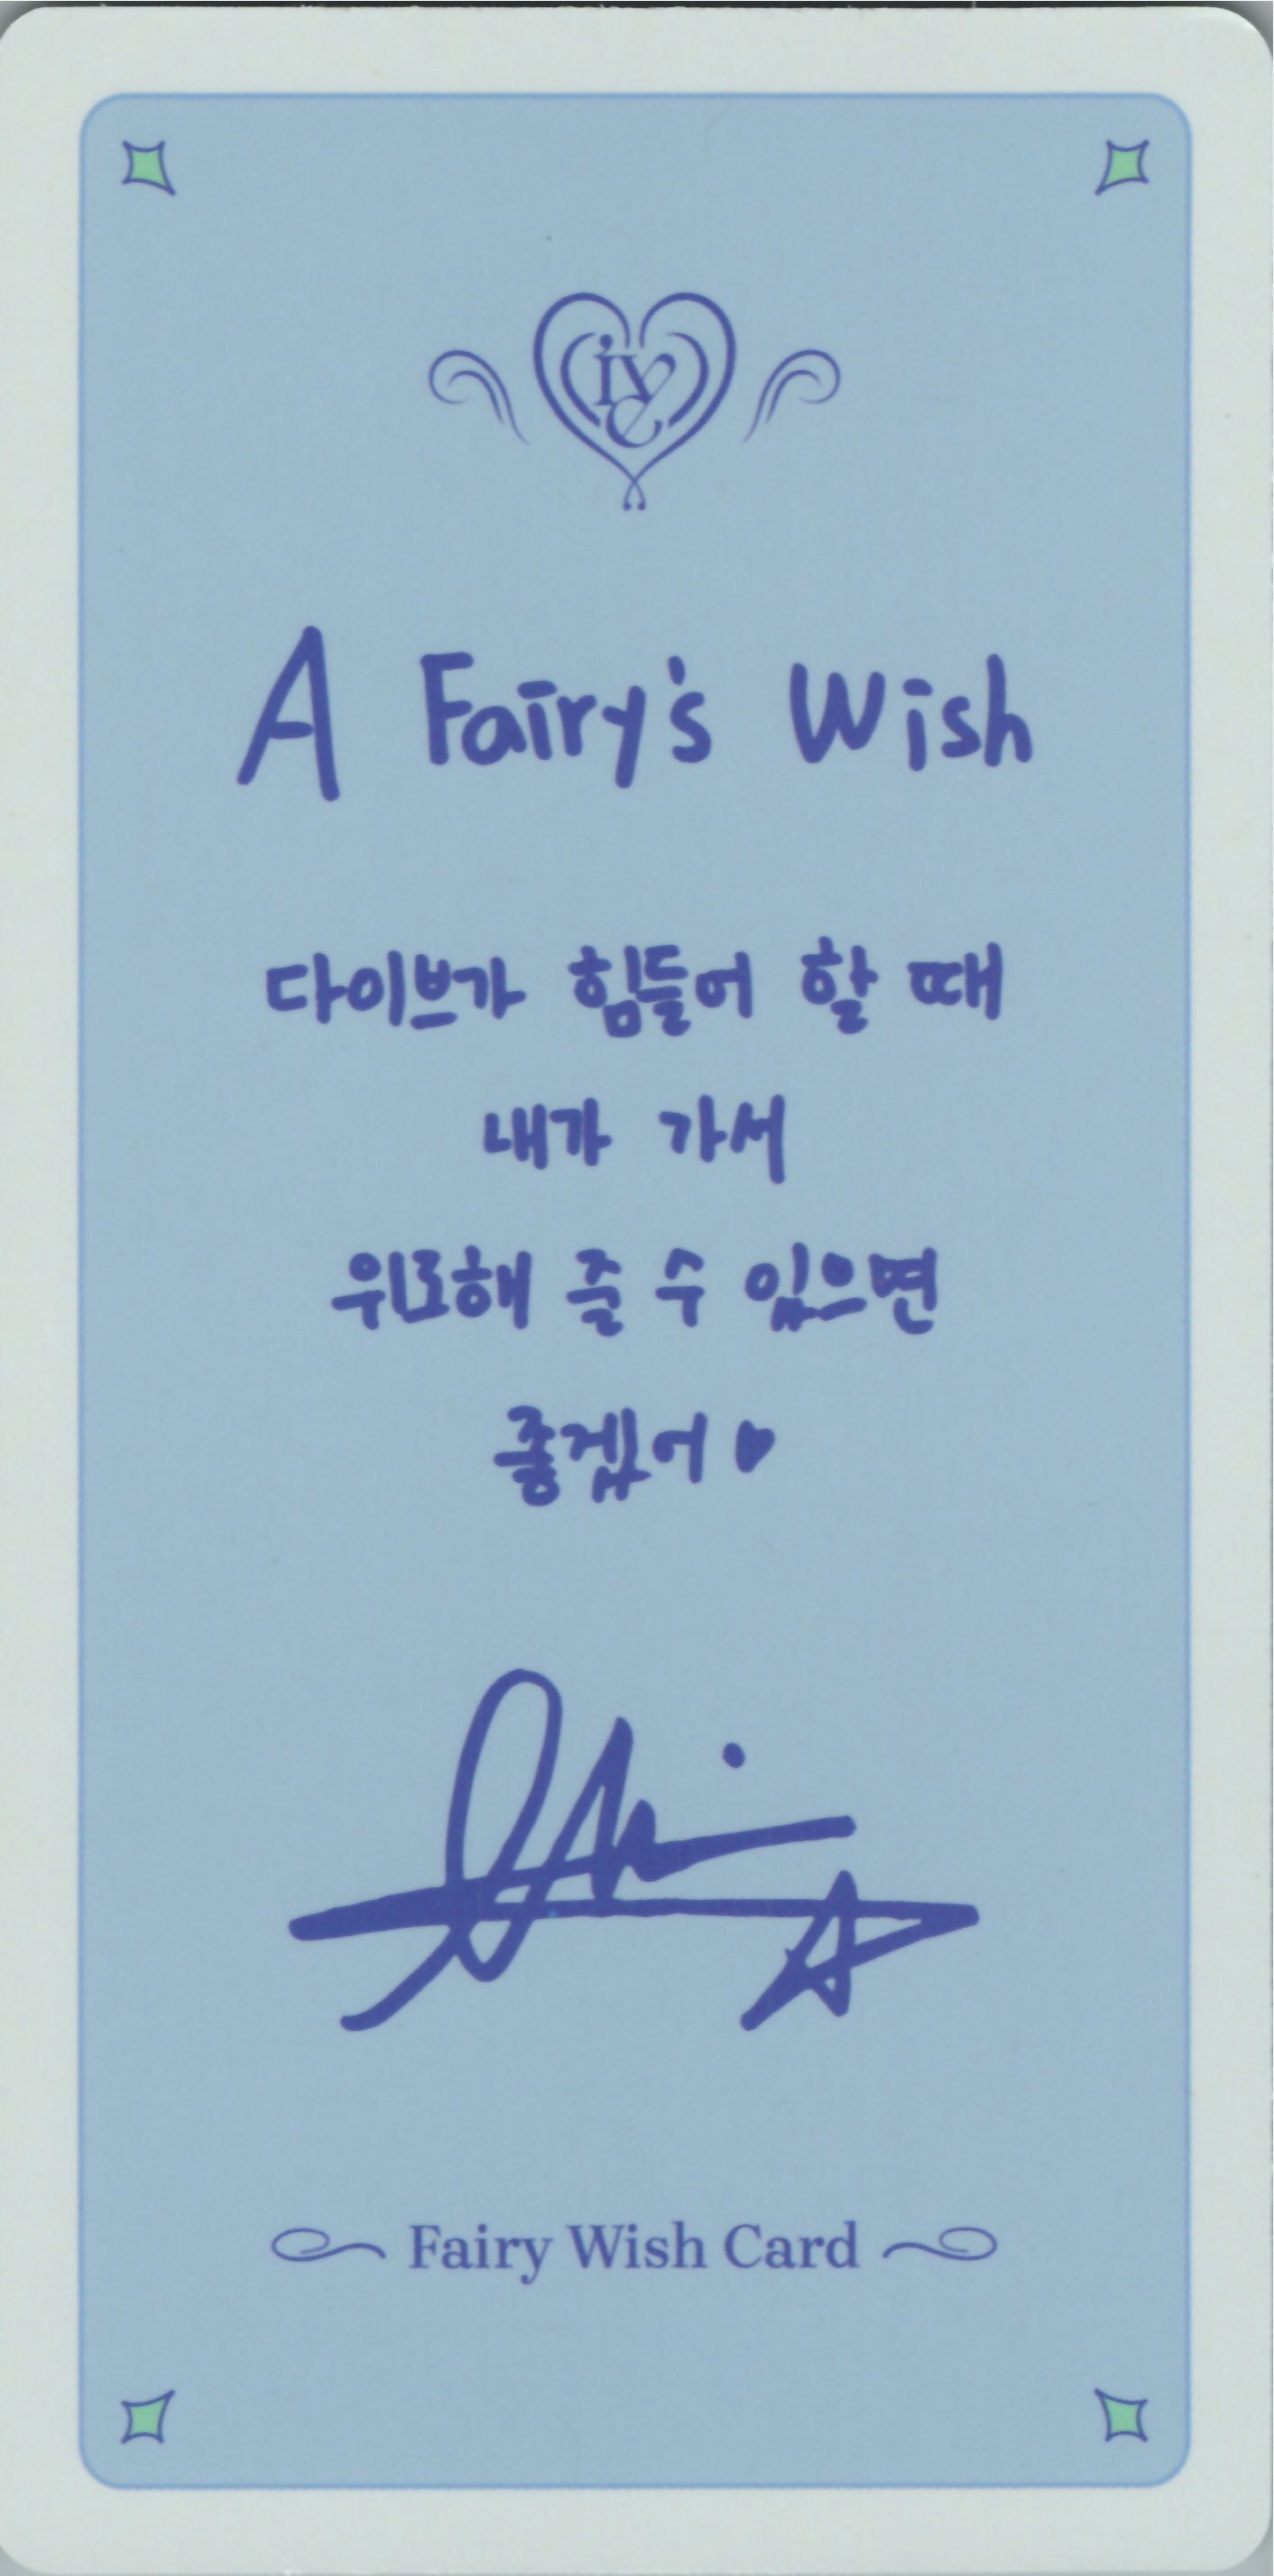 ive
A Fairy's Wish
다이브가 힘들어 할 때
내가 가서
위로해 줄 수 있으면
좋겠어♥
Fairy Wish Card